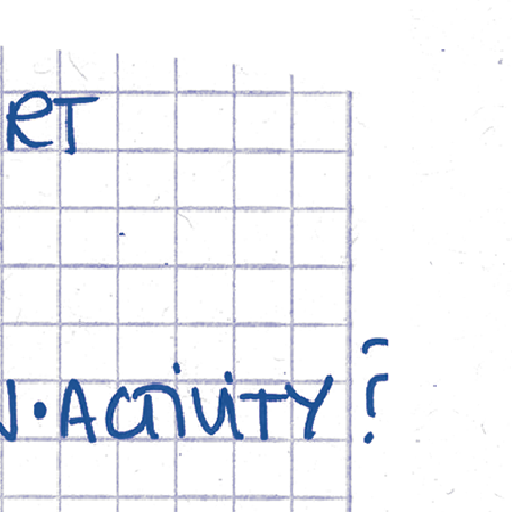 RT
N·ACTIVITY?